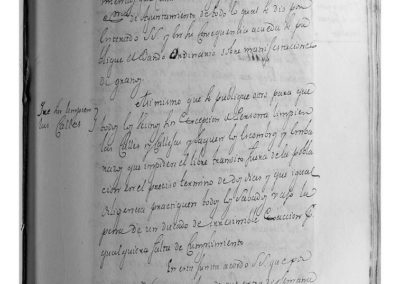 de Ayuntamiento de todo lo qual se dio por
Entendido SS. y en su Consequencia acordó se pu
blique el Bando Ordinario sobre manifestaciones
de granos.
Que se limpien
las Calles
Asimismo que se publique otro para que
todos los Vecinos sin excepcion de Persona limpien
las Calles y Callejas y saquen los escombros y emba
razos que impiden el libre transito, fuera de la pobla
cion en el preciso termino de dos dias y que igual
diligencia practiquen todos los Sabados vajo la
pena de un ducado de irremisible Exaccion
qualquiera falta de Cumplimiento
En esta Junta acordó SS. que